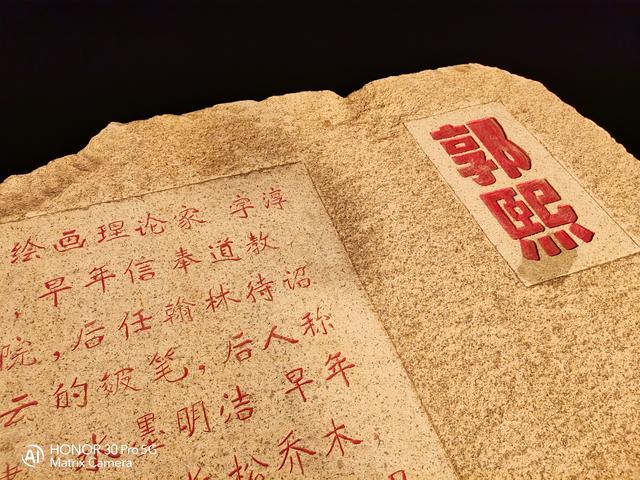 郭
熙
绘画理论家 字淳
,早年信奉道教
院,后任翰林待诏
云的皴笔,后人称
水墨明洁 早年
松乔木
HONOR 30 Pro 5G
Matrix Camera